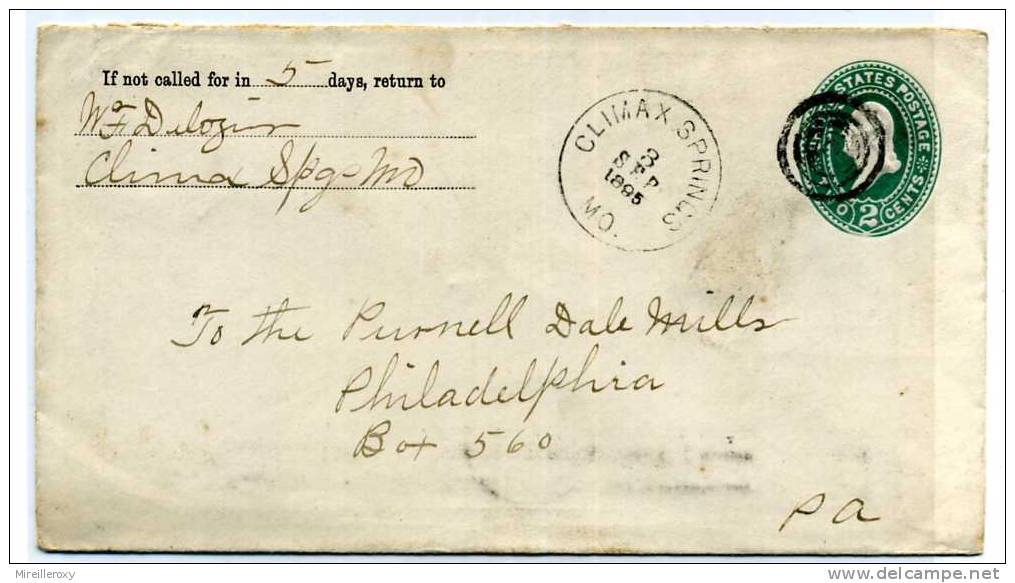 If not called for in 5 days, return to
W F Delozier
Climax Spgs Mo
CLIMAX SPRINGS
3
SEP
1895
MO.
STATES POSTAGE
2
CENTS
To the Purnell Dale Mills
Philadelphia
Box 560
Pa
Mireilleroxy
delcampe.net